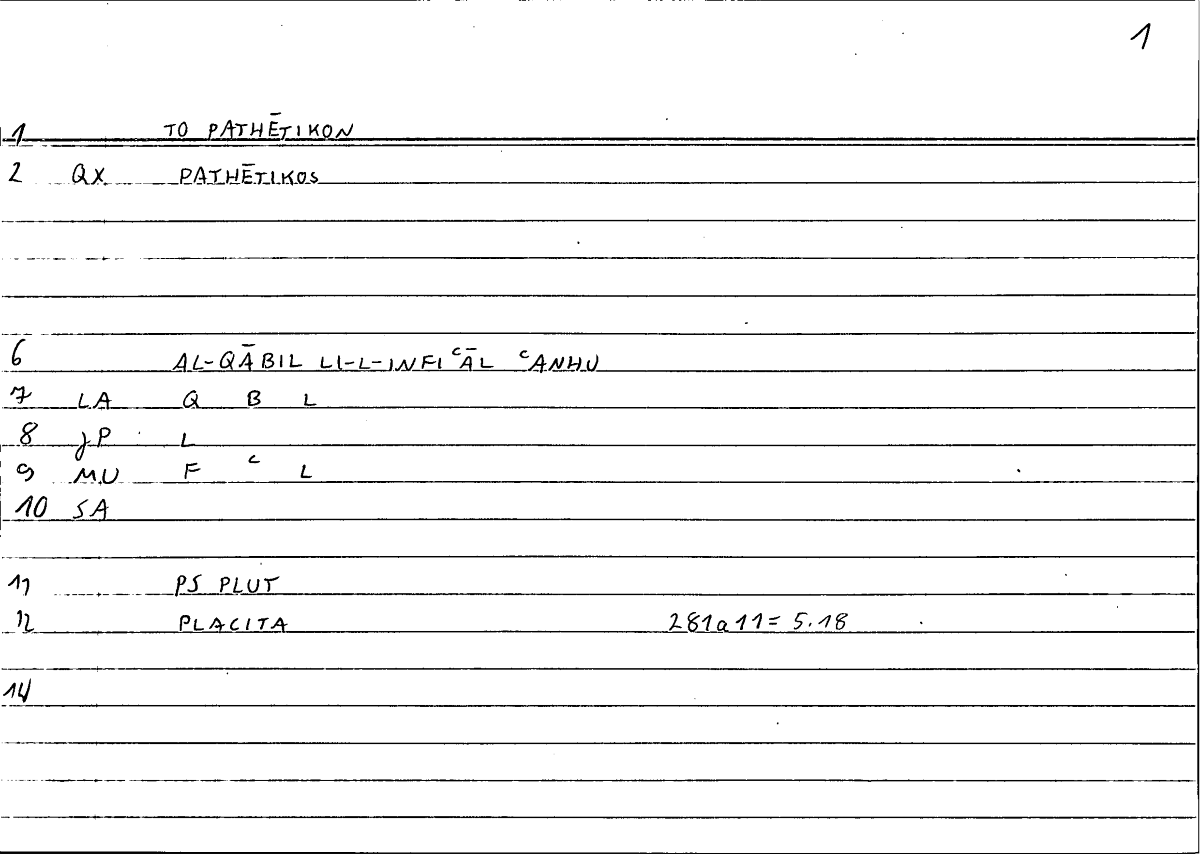 1
1 TO PATHĒTIKON
2 QX PATHĒTIKOS
6 AL-QĀBIL LI-L-INFIᶜĀL ᶜANHU
7 LA Q B L
8 JP L
9 MU F ᶜ L
10 SA
11 PS PLUT
12 PLACITA 281a11= 5.18
14